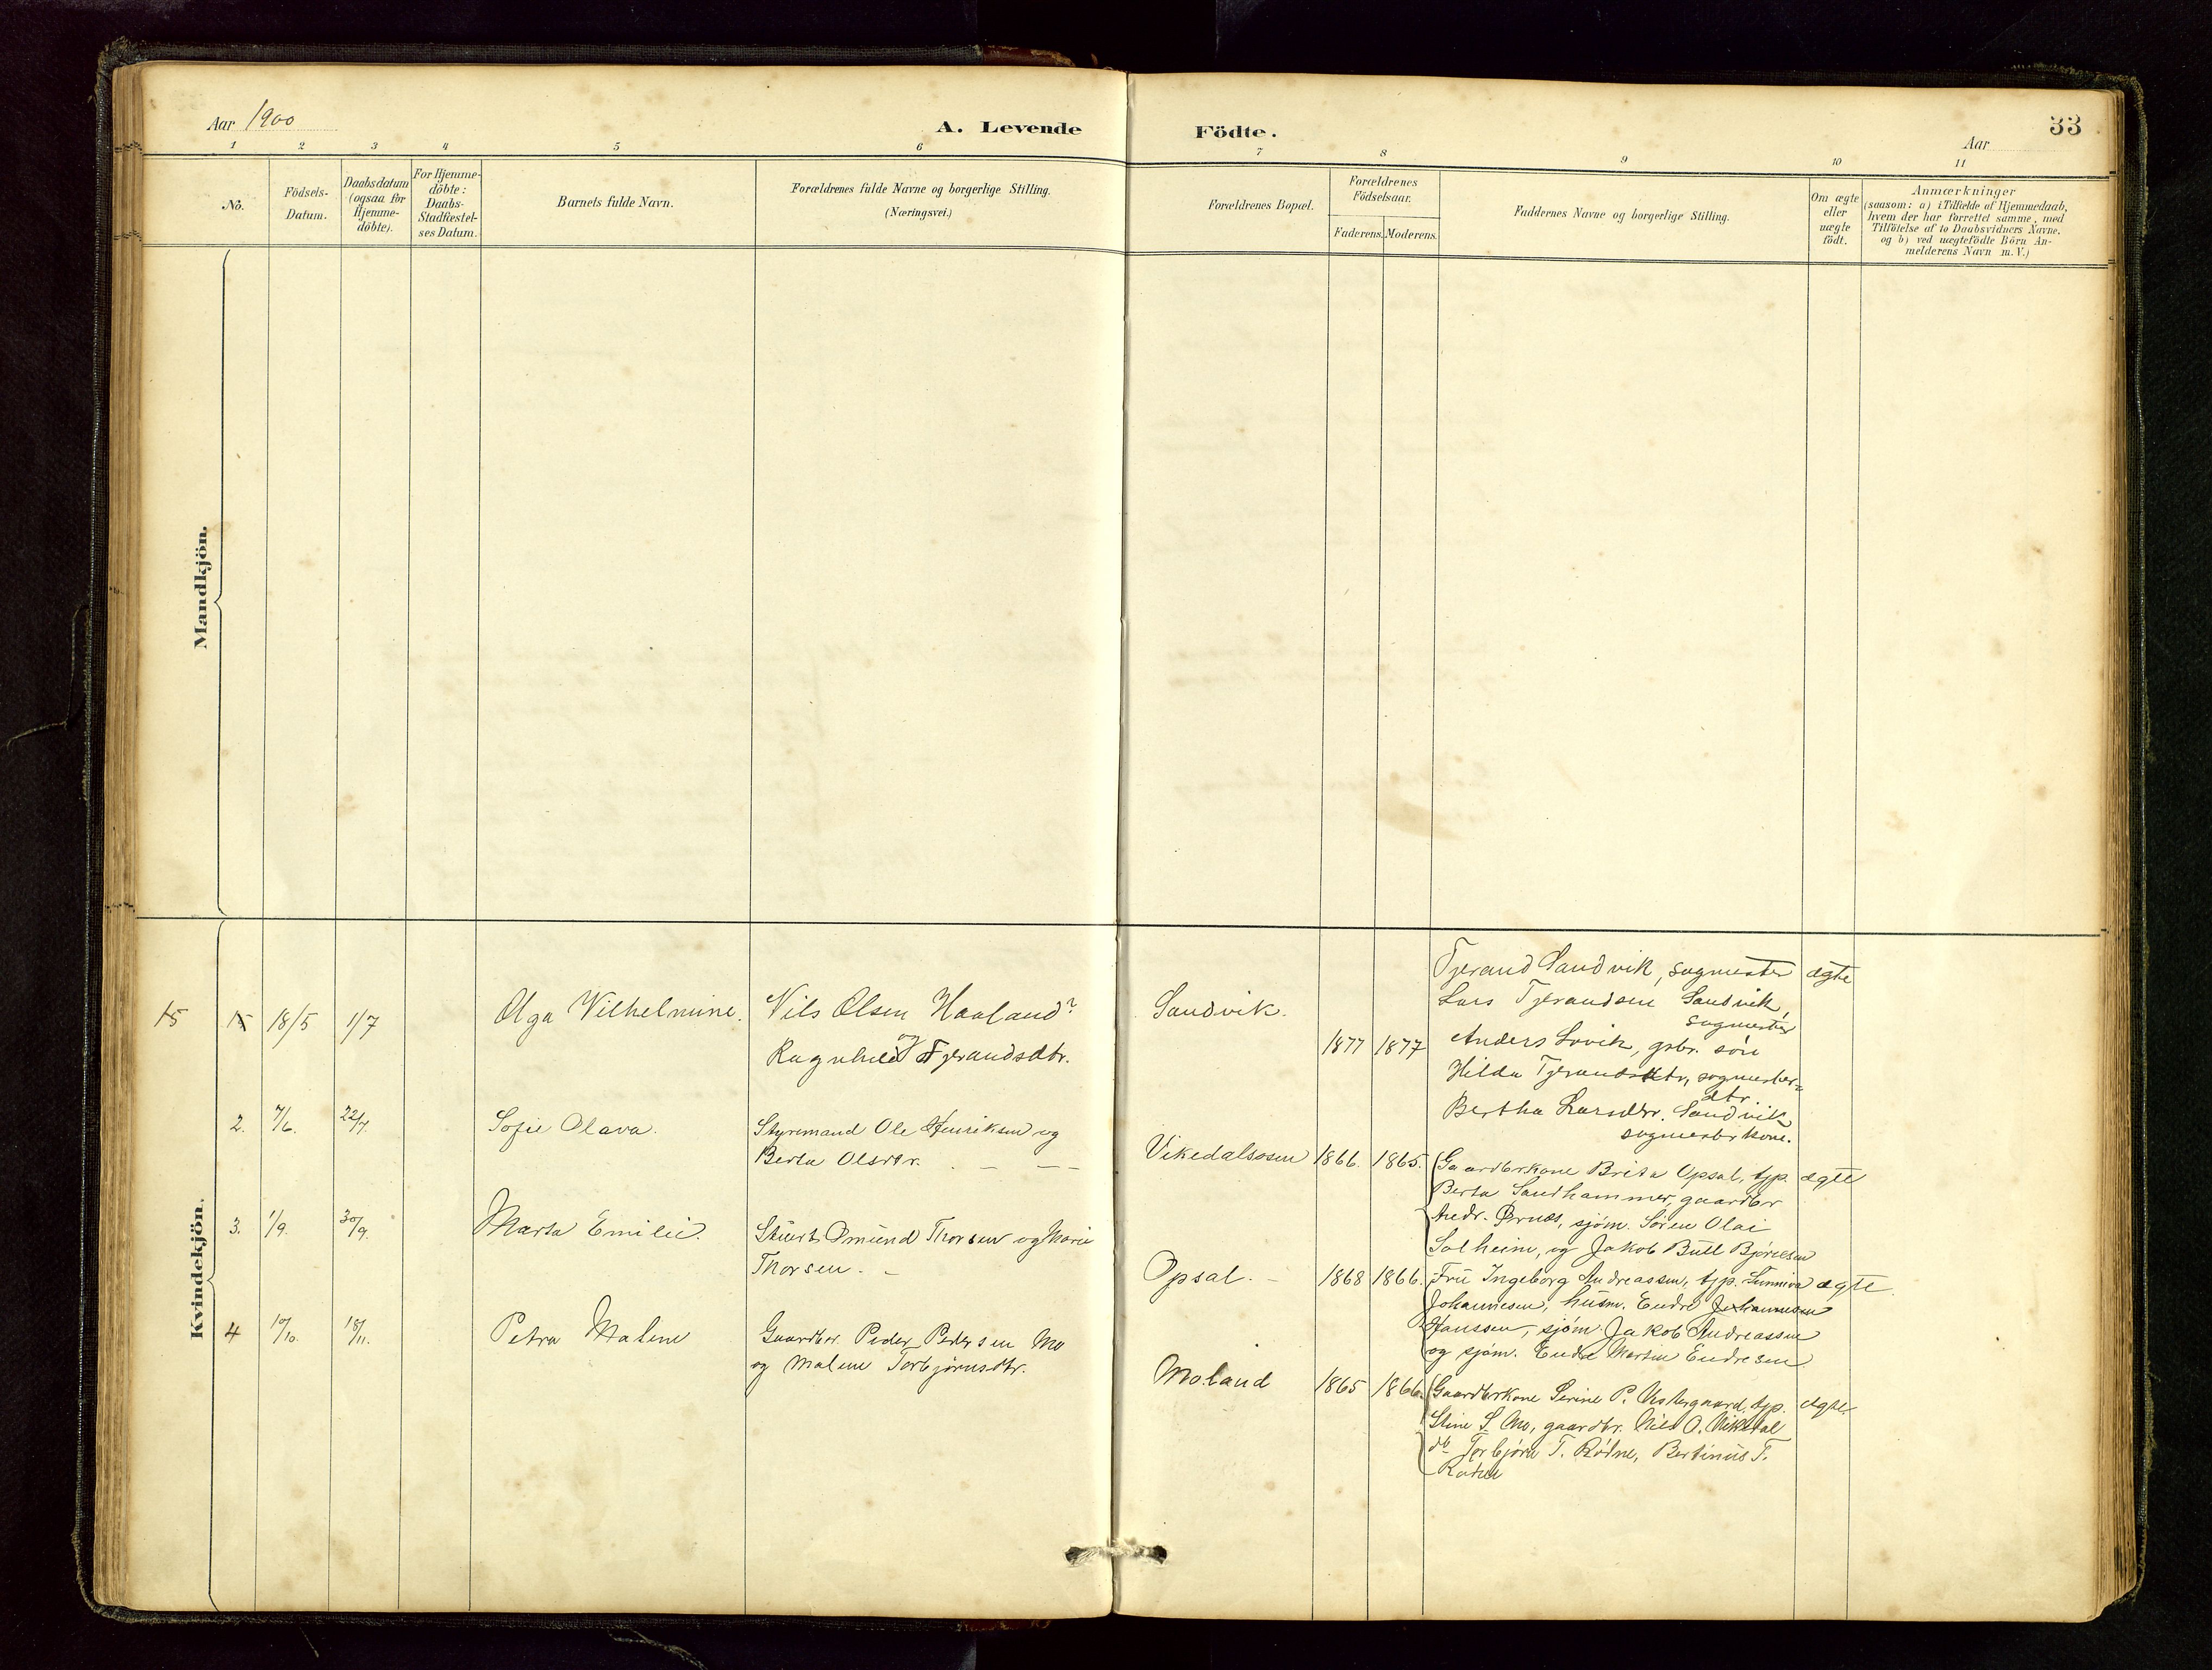 Aar 1900
A. Levende
Födte.
Aar
33
1 2 3 4 5 6 7 8 9 10 11
No.
Födsels-
Datum.
Daabsdatum
(ogsaa for
Hjemme-
döbte).
For Hjemme-
döbte:
Daabs-
Stadfæstel-
ses Datum.
Barnets fulde Navn.
Forældrenes fulde Navne og borgerlige Stilling.
(Næringsvei.)
Forældrenes Bopæl.
Forældrenes
Födselsaar.
Faderens. Moderens.
Faddernes Navne og borgerlige Stilling.
Om ægte
eller
uægte
födt.
Anmærkninger
(saasom: a) i Tilfælde af Hjemmedaab,
hvem der har forrettet samme, med
Tilföielse af to Daabsvidners Navne.
og b) ved uægtefödte Börn An-
melderens Navn m. V.)
Mandkjön.
Kvindekjön.
15 15 18/5 1/7 Olga Vilhelmine. Nils Olsen Haaland?
og
Ragnhild Tjerandsdtr.
Sandvik.
1877 1877
Tjerand Sandvik, sogmester ægte
Lars Tjerandsen Sandvik,
sogmester
Anders Lovik, gbr. søn
Hilda Tjerandsdtr, sogmester=
dtr.
Bertha Larsdtr. Sandvik
sogmestr kone.
2. 7/6. 22/7. Sofie Olava. Styrmand Ole Henriksen og
Berta Olsdtr. - -
Vikedalsosen 1866. 1865. Gaardbrkone Brita Opsal, tjp. ægte
Berta Sandhammer, gaardbr
Andr. Ørnes, sjøm. Søren Olai
Solheim, og Jakob Bull Bjørnsen
3. 1/9. 30/9. Marta Emilie. Stuert Omund Thorsen og Marie
Thorsen. -
Opsal. - 1868 1866. Fru Ingeborg Andreassen, tjp. Sunniva ægte.
Johannesen, husm. Endre Johannesen
Hanssen, sjøm. Jakob Andreassen
og sjøm. Endre Martin Endresen
4 10/10. 18/11. Petra Malene Gaardbr. Peder Pedersen Mo
og Malene Torbjørnsdtr.
Moland 1865 1866. Gaardbrkone Serine P. tjp. ægte.
Stine S. Mo, gaardbr. Nils O.
do Torbjørn T. Rødne, Bertinius T.
Rødne